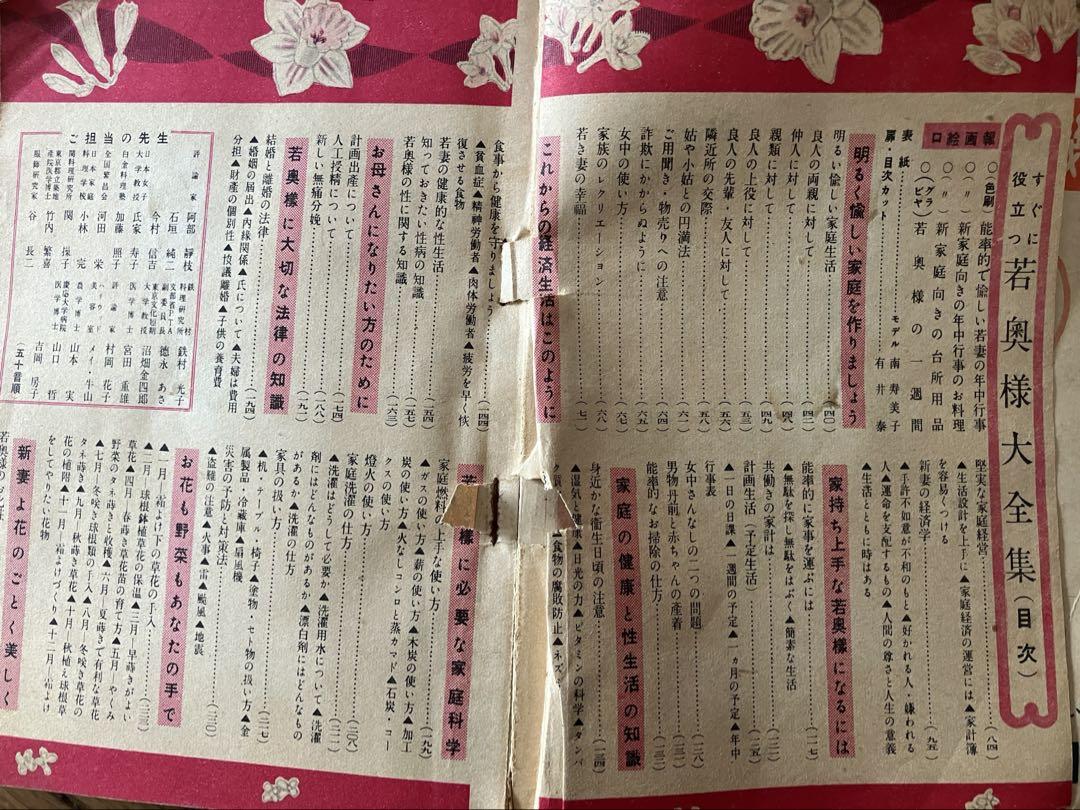 すぐに役立つ
若奥様大全集（目次）
報画絵口
〇（色刷）能率的で愉しい若妻の年中行事
〇（〃）新家庭向きの年中行事のお料理
〇（〃）新家庭向きの台所用品
〇（グラビヤ）若奥様の一週間
表紙……モデル 南寿美子
扉・目次カット……有井泰
明るく愉しい家庭を作りましょう
明るい愉しい家庭生活
良人の両親に対して
仲人に対して
親類に対して
良人の上役に対して
良人の先輩、友人に対して
隣近所の交際
姑や小姑との円満法
ご用聞き、物売りへの注意
詐欺にかからぬように
女中の使い方
家族のレクリエーション
若き妻の幸福
これからの経済生活はこのように
堅実な家庭経営（八四）
▲生活設計を上手に▲家庭経済の運営には▲家計簿
を容易くつける
新妻の経済学（九五）
▲手許不如意が不和のもと▲好かれる人、嫌われる
人▲運命を支配するもの▲人間の尊さと人生の意義
▲生活とともに時はある
家持ち上手な若奥様になるには
能率的に家事を運ぶには（一一七）
▲無駄を探し無駄をはぶく▲簡素な生活
共働きの家計は
計画生活（予定生活）
▲一日の日課▲一週間の予定▲一ヵ月の予定▲年中
行事表
女中さんなしの二つの問題
男物丹前と赤ちゃんの産着
能率的なお掃除の仕方
家庭の健康と性生活の知識
身近かな衛生日頃の注意（一三四）
▲湿気と健康▲日光の力▲ビタミンの科学▲タンパ
▲食物の腐敗防止▲ネズ
食事から健康を守りましょう（一四四）
▲貧血症▲精神労働者▲肉体労働者▲疲労を早く恢
復させる食物
若妻の健康的な性生活
知っておきたい性病の知識（一五四）
若奥様の性に関する知識（一六三）
お母さんになりたい方のために
計画出産について（一七四）
人工授精について
新しい無痛分娩
若奥様に大切な法律の知識
結婚と離婚の法律（一九四）
▲婚姻の届出▲内縁関係▲氏について▲夫婦は費用
分担▲財産の個別性▲協議離婚▲子供の養育費
ご担当の先生
評論家 阿部靜枝
日本女子大学教授 石垣純二
今村信吉
氏家寿子
加藤照子
河田栄
小林完
関操子
竹内繁喜
服飾研究家 谷長二
鉄村料理研究所 鉄村光子
徳永あさ
沼畑金四郎
医学博士 宮田重雄
評論家 村岡花子
ハリウッド美容室 メイ・牛山
農学博士 山本実
山口哲
医学博士 吉岡房子
（五十音順）
様に必要な家庭科学
家庭燃料の上手な使い方（一九九）
▲ガスの使い方▲薪の使い方▲木炭の使い方▲加工
炭の使い方▲火なしコンロと蒸カマド▲石炭・コー
クスの使い方
燈火の使い方（二〇八）
家庭洗濯の仕方
▲洗濯はどうして必要か▲洗濯用水について▲洗濯
剤にはどんなものがあるか▲漂白剤にはどんなもの
があるか▲洗濯の仕方
家具の扱い方（二二七）
▲机、テーブル、椅子▲塗物・セト物の扱い方▲金
属製品、冷蔵庫▲扇風機
災害の予防と対策法（二三〇）
▲盗難の注意▲火事▲雷▲颱風▲地震
お花も野菜もあなたの手で
▲一月、霜よけ下の草花の手入
▲二月、球根鉢植草花の保温▲三月、早蒔きがよい
草花▲四月、春蒔き草花苗の育て方▲五月―やくみ
野菜のタネ蒔きと収穫▲六月―夏蒔きで有利な草花
▲七月、冬咲き球根類の手入▲八月、冬咲き草花の
タネ蒔き▲九月、秋蒔き草花▲十月―秋植え球根草
花の植附▲十一月―霜よけづくり▲十二月―霜よけ
をしてやりたい花物
新妻よ花のごとく美しく